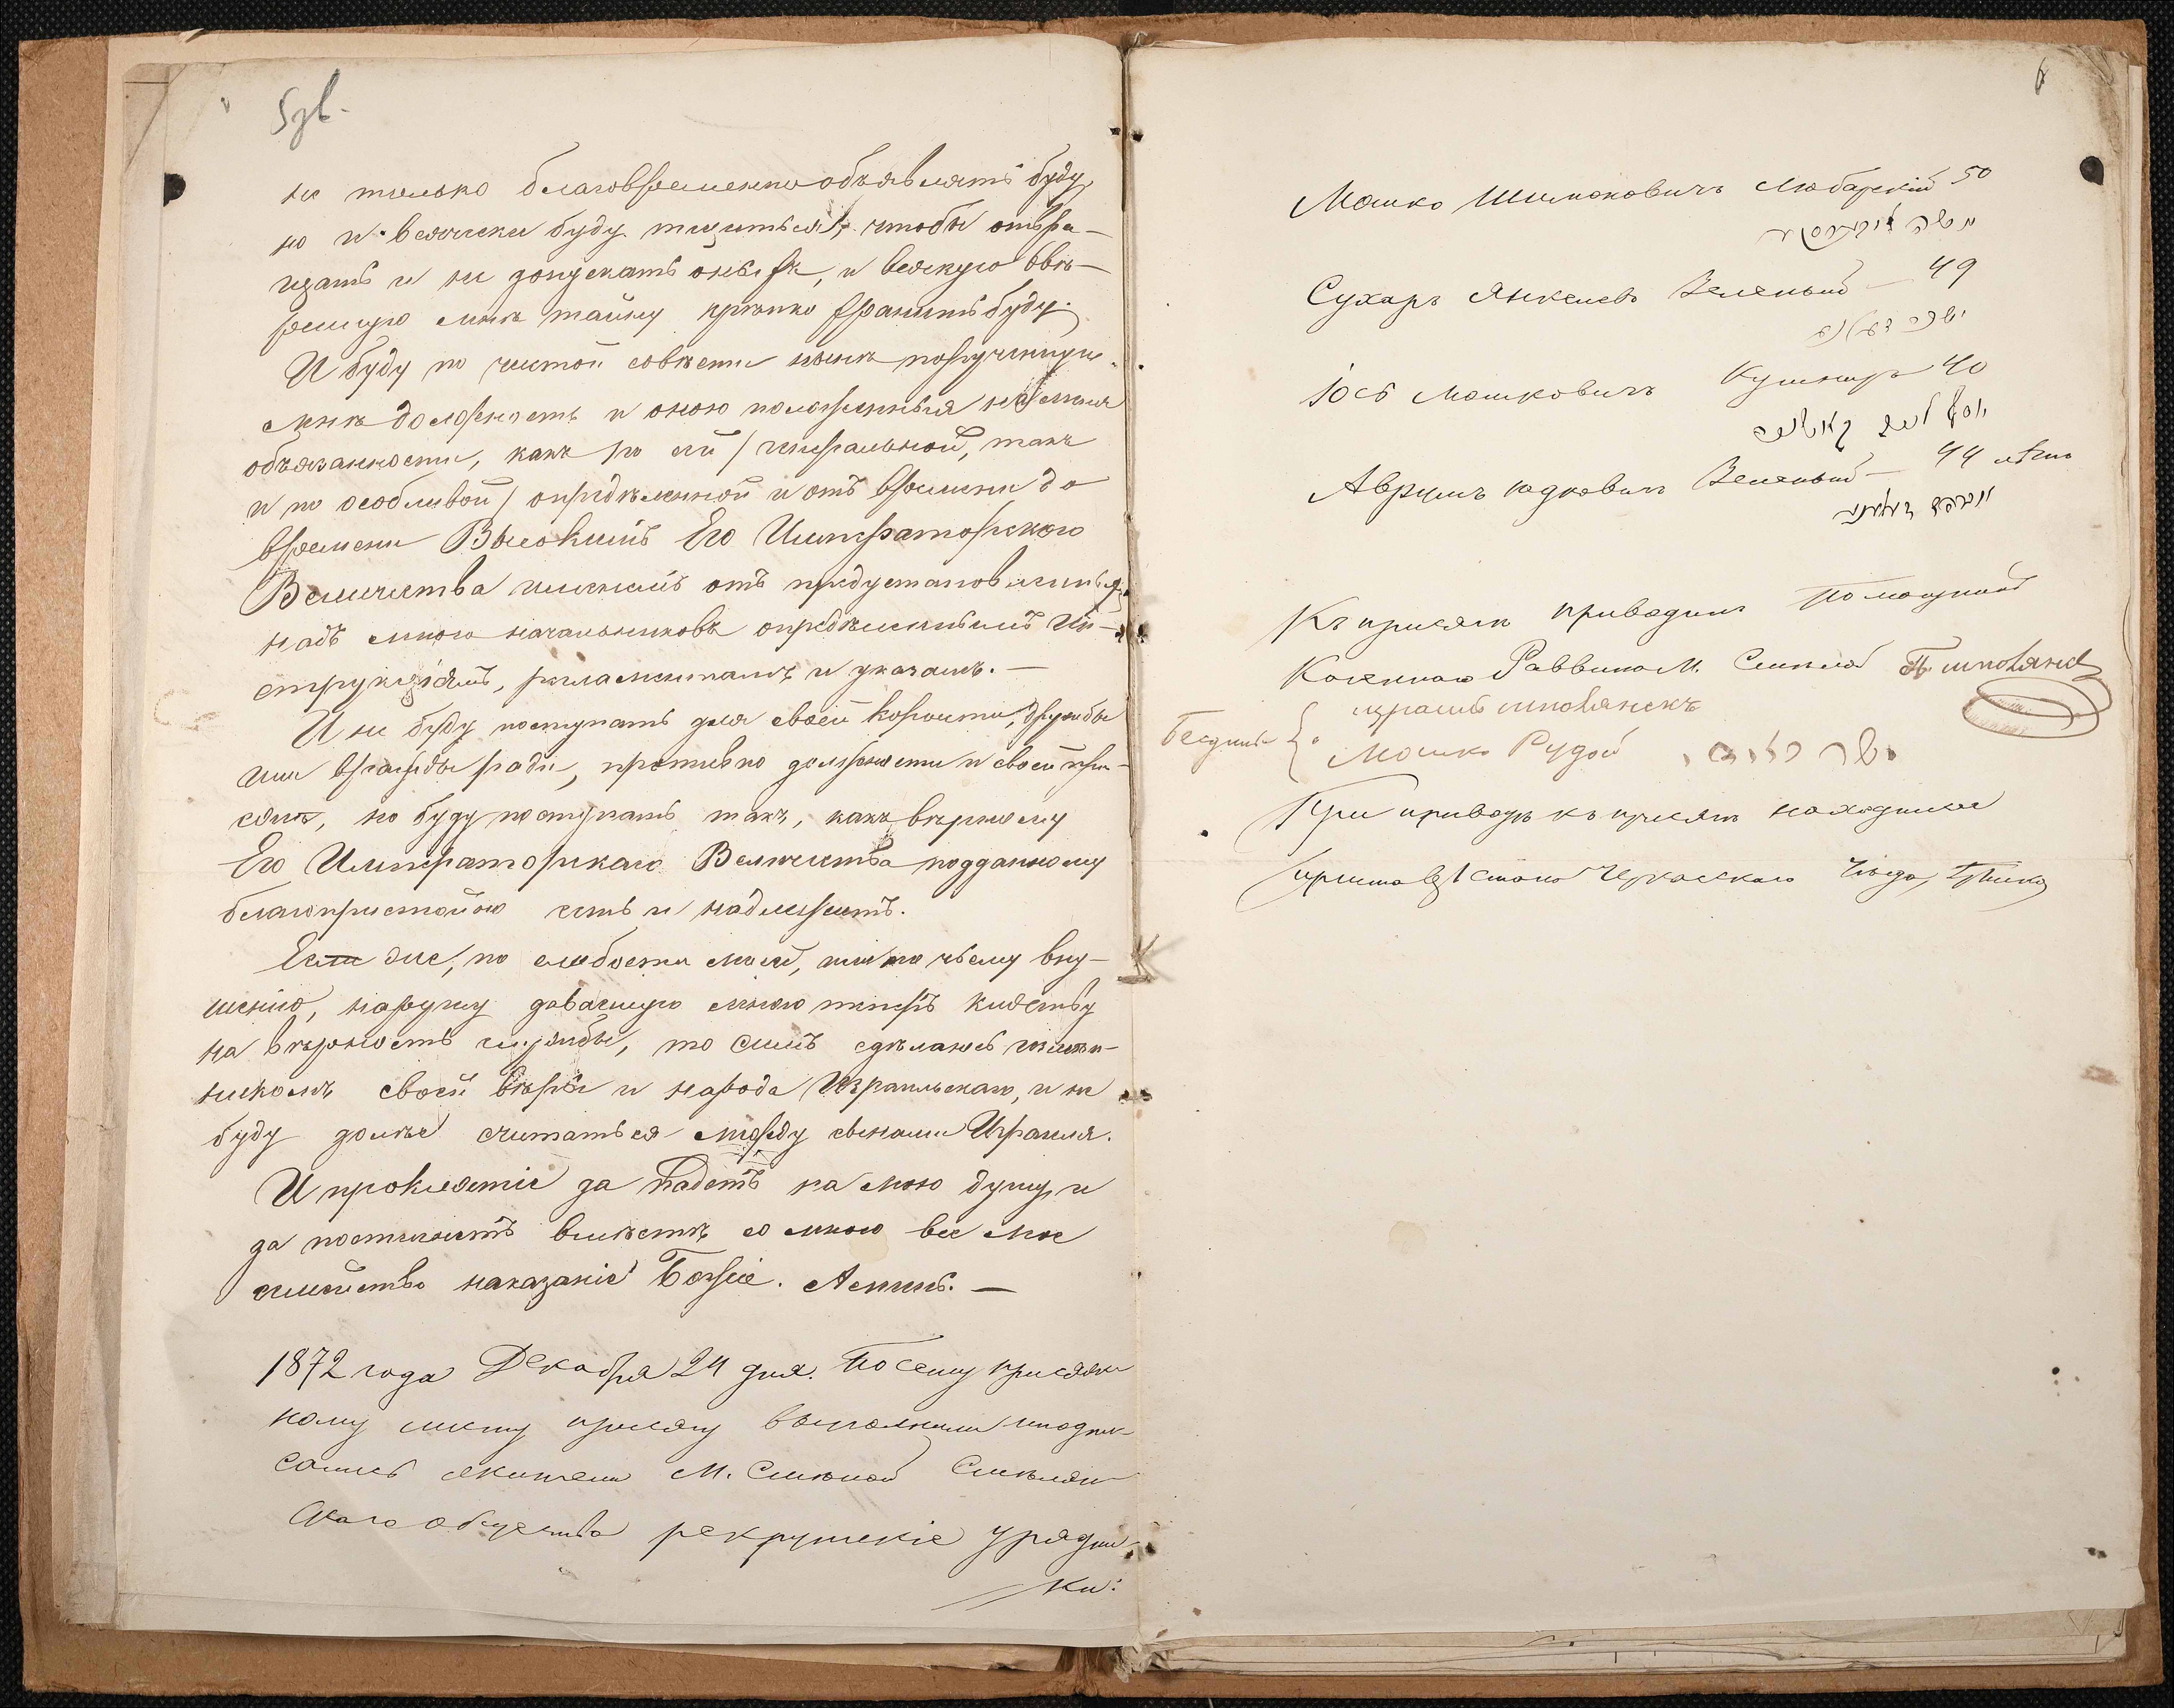 5 зв.
не только благовременно объявлять буду,
но и всячески буду тщиться, чтобы отвра-
щать и не допускать оныхъ, и всякую ввѣ-
ренную мнѣ тайну крѣпко хранить буду.
И буду по чистой совѣсти нынѣ порученную
мнѣ должность и оною положенныя на меня
обязанности, какъ по сей / генеральной, такъ
и по особливой / опредѣленной и отъ времени до
времени Высокимъ Его Императорского
Величества именемъ отъ предустановленныхъ
надъ мною начальниковъ опредѣленнымъ Ин-
струкціямъ, регламентамъ и указамъ. —
И не буду поступать для своей корысти, дружбы
или вражды ради, противно должности и своей при-
сяги, но буду поступать такъ, какъ вѣрному
Его Императорскаго Величества подданному
благопристойно есть и надлежитъ.
Если же, по слабости моей, или по чьему вну-
шенію, нарушу даваемую мною теперь клятву
на вѣрность службы, то симъ сдѣлаюсь
своей вѣры и народа Израильскаго, и не
буду долѣе считаться между сынами Израиля.
И проклятіе да падетъ на мою душу, и
да постигнетъ вмѣстѣ со мною все мое
семейство наказаніе Божіе. Аминь. —
1872 года Декабря 24 дня. По сему присяж-
ному листу присягу выполнили и подпи-
сались жители М. Смѣлой Смѣлян-
скаго общества рекрутскіе уряди-
ки:
6
Мошко Шимоновичъ Любарскій 50
משה
Сухаръ Янкелевъ Зеленый — 49
Іось Мошковичъ Кушниръ 40
יוסף
Аврумъ Юдковичъ Зеленый — 44 лѣтъ
Къ присягѣ приводилъ Помощникъ
Казеннаго Раввина М. Смѣлой
Мошко Рудой
При приводѣ къ присягѣ находился
Приставъ 1 стана Черкасскаго Уѣзда,